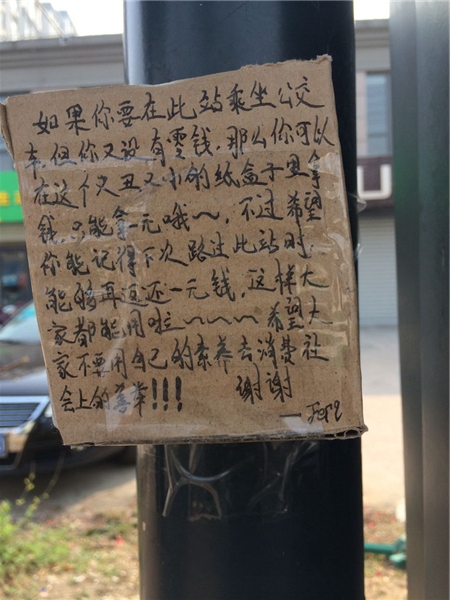 如果你要在此站乘坐公交
车,但你又没有零钱,那么你可以
在这个又丑又小的纸盒子里拿
钱,只能拿一元哦~,不过希望
你能记得下次路过此站时,
能够再返还一元钱,这样大
家都能用啦~~~~希望大
家不要用自己的素养去消费社
会上的善举!!! 谢谢